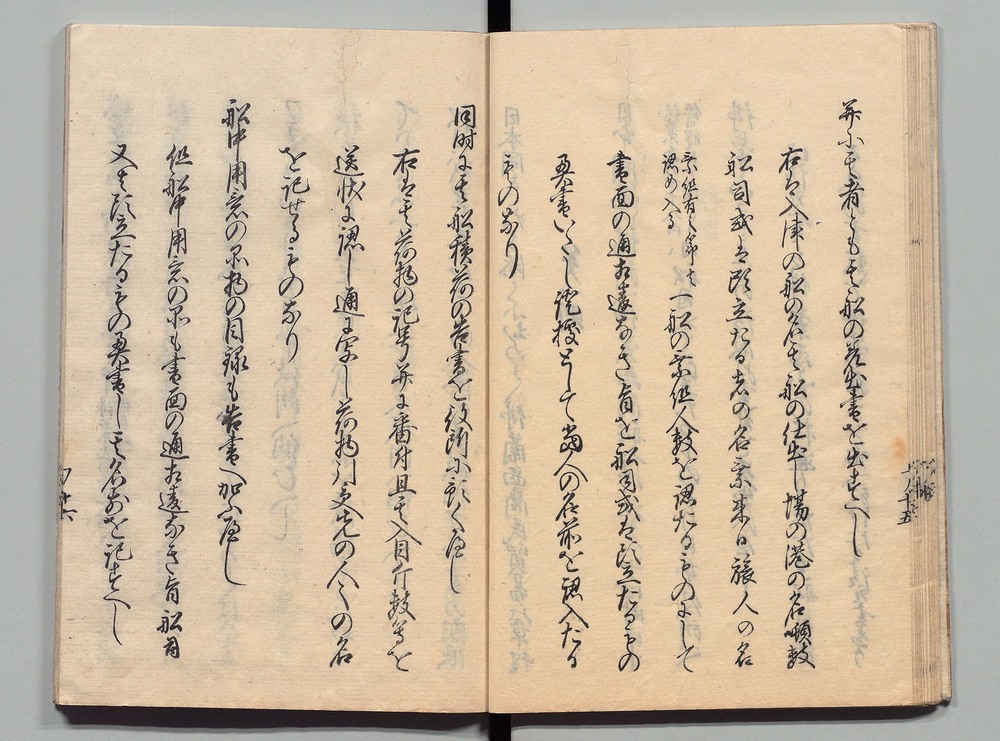 并に其者とも其船の差出書を出すへし
右は入津の船の名其船の仕出し場の港の名噸数
船司或は頭立たる者の名乗来る旅人の名
乗組有之節は
認め入る
一船の乗組人数を認たるものにして
書面の通相違なき旨を船司或は頭立たるもの
奥書いたし証拠として当人の名前を認入たる
ものなり
同時に其船積荷の告書を役所に預くへし
右は其荷物の記号并に番付且其入目斤数等を
送状に認し通に写し荷物引受先の人々の名
を記せるものなり
船中用意の品物の目録も告書へ加ふへし
但船中用意の品も書面の通相違なき旨船司
又は頭立たるもの奥書し其名前を記すへし